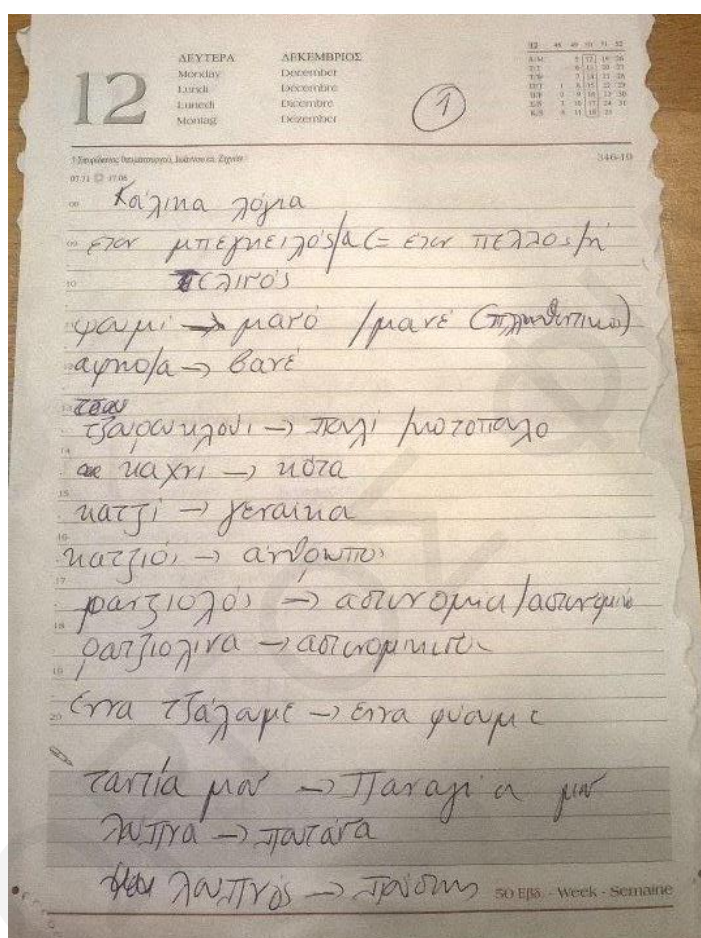 12
ΔΕΥΤΕΡΑ
Monday
Lundi
Lunedi
Montag
ΔΕΚΕΜΒΡΙΟΣ
December
Décembre
Dicembre
Dezember
1
346-19
07.31 17.06
Κάλικα λόγια
εταν μπεγκειλός/α (= εταν πελλος/ή
πελικός
ψουμί → μανό /μανέ (πληθυντικό)
αφκο/α → βανέ
τζουρουκλούι → παλί /κοτοπαλο
καχνι → κότα
κατζί → γεναίκα
κατζιόι → άνθρωποι
ρατζιολόι → αστυνομια/αστυνομικό
ρατζιολινα → αστυνομικίνα
έννα τζάλαμε → εννα φύουμε
ταπία μου → Παναγία μου
λούπνα → πουτάνα
λουπνός → πούστης
50 Εβδ. - Week - Semaine